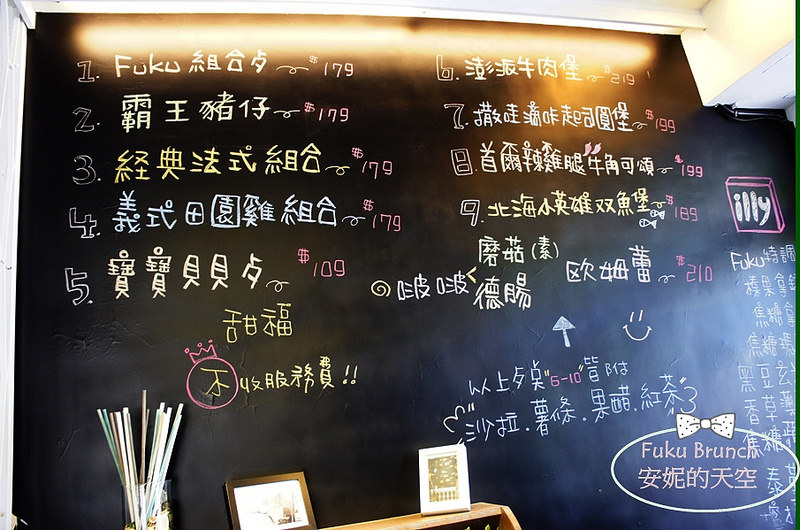 1. Fuku 組合歺 $179
2. 霸王豬仔 $179
3. 経典法式組合 $179
4. 義式田園雞組合 $179
5. 寶寶貝貝歺 $109
甜福
不收服務費!!
6. 澎派牛肉堡 $219
7. 撒哇滴咔起司圓堡 $199
8. 首爾辣雞腿牛角可頌 $199
9. 北海小英雄双魚堡 $189
啵啵
蘑菇(素)
德腸
歐姆蕾 $210
以上歺點"6-10"皆附
沙拉.薯條.果醋.紅茶
illy
Fuku特調
榛果拿鐵
焦糖拿
焦糖瑪
黑豆玄
香草
焦糖
Fuku Brunch
安妮的天空